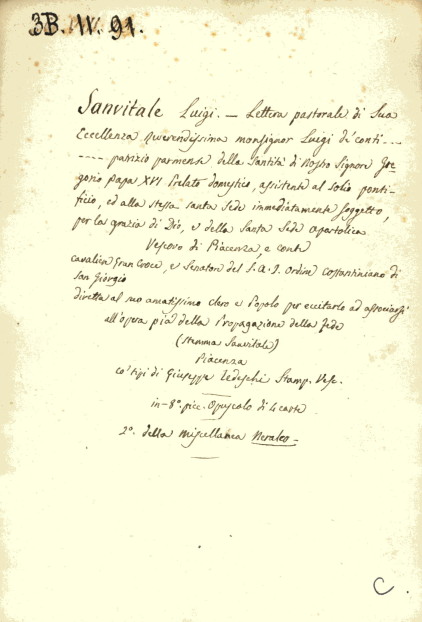 3B. IV. 91.
Sanvitale Luigi. — Lettera pastorale di Sua
Eccellenza Reverendissima monsignor Luigi de' conti ----
----- patrizio parmense della Santità di Nostro Signore Gre-
gorio Papa XVI Prelato domestico, assistente al solio ponti-
ficio, ed alla stessa santa Sede immediatamente soggetto,
per la grazia di Dio, e della Santa Sede apostolica
Vescovo di Piacenza, e conte
cavalier Gran Croce, e Senatore del S. A. I. Ordine Costantiniano di
San Giorgio
diretta al suo amatissimo clero e Popolo per eccitarlo ad associarsi
all'opera pia della Propagazione della Fede
(stemma Sanvitale)
Piacenza
co' tipi di Giuseppe Tedeschi Stamp. Vesc.
in-8°. picc. Opuscolo di 4 carte
2°. della miscellanea
C.